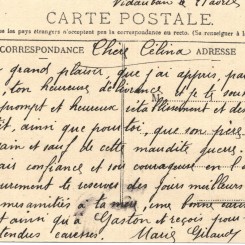 Vidauban le 1 avril
CARTE POSTALE
us les pays étrangers n'acceptent pas la correspondance au recto. (Se renseigner à l
CORRESPONDANCE Chère Célina ADRESSE
grand plaisir que j'ai appris, pa
ton heureuse délivrance et je te sou
prompt et heureux rétablissement et des
t, ainsi que pour toi, que son père
ain et sauf de cette maudite guerre.
ais confiance et sois courageuse en l
urement te réserver des jours meilleurs
mes amitiés à ta mère, une bonne
et ainsi qu'à Gaston et reçois pour
tendres caresses. Marie Giraud